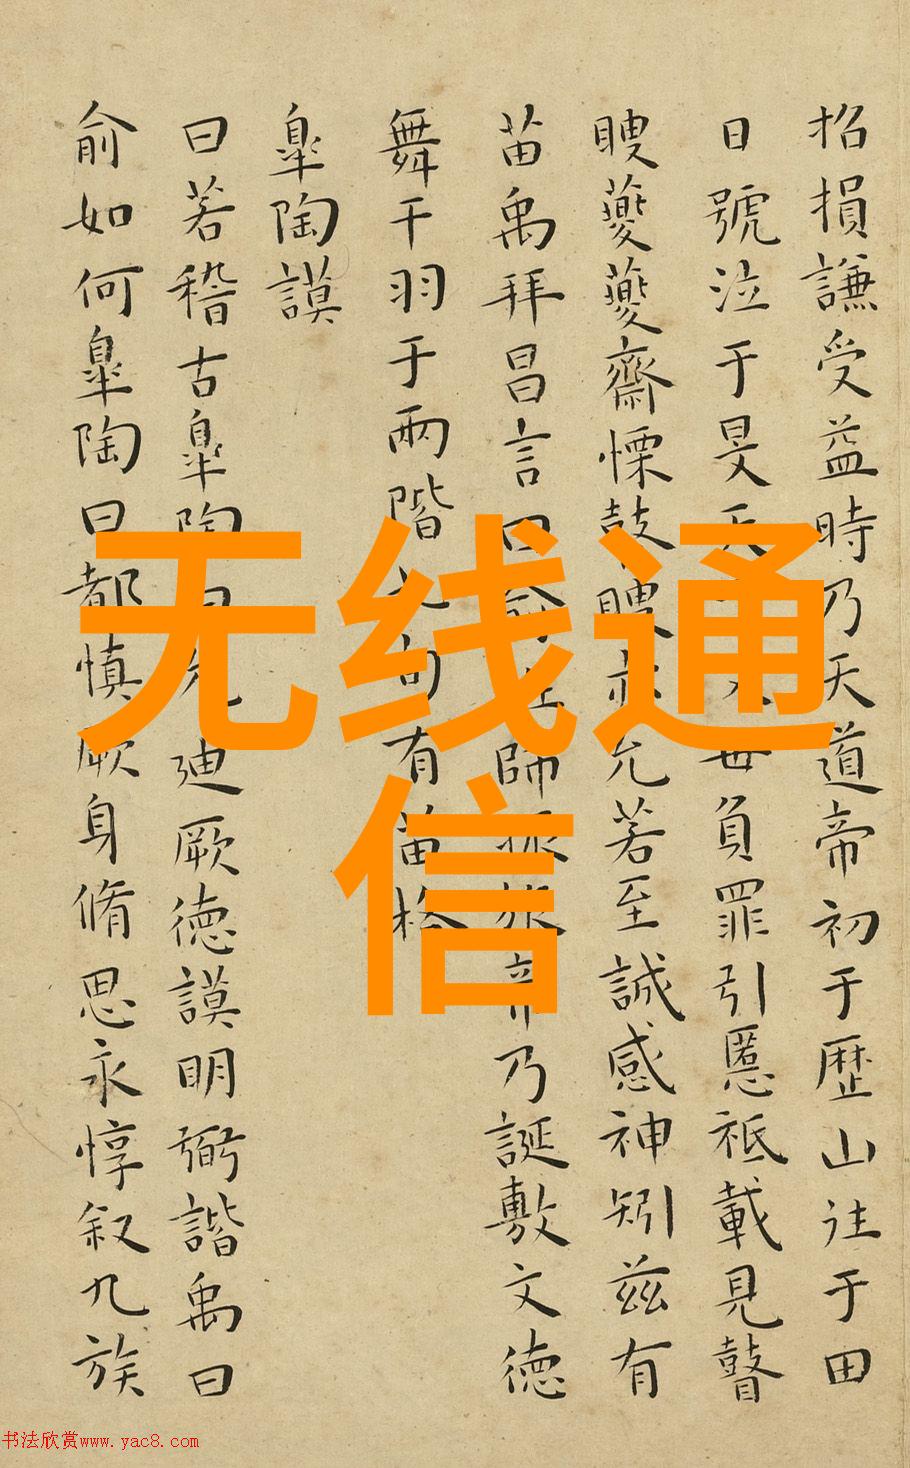 招損謙受益時乃天道帝初于歴山往于田
日號泣于旻天父母負罪引慝祗載見瞽
瞍夔夔齋慄鼓瞍亦允若至誠感神矧兹有
苗禹拜昌言曰俞班師振旅帝乃誕敷文德
舞干羽于兩階七旬有苗格
皐陶謨
曰若稽古皐陶曰允迪厥德謨明弼諧禹曰
俞如何皐陶曰都慎厥身脩思永惇叙九族
无线通
信
书法欣赏www.yac8.com